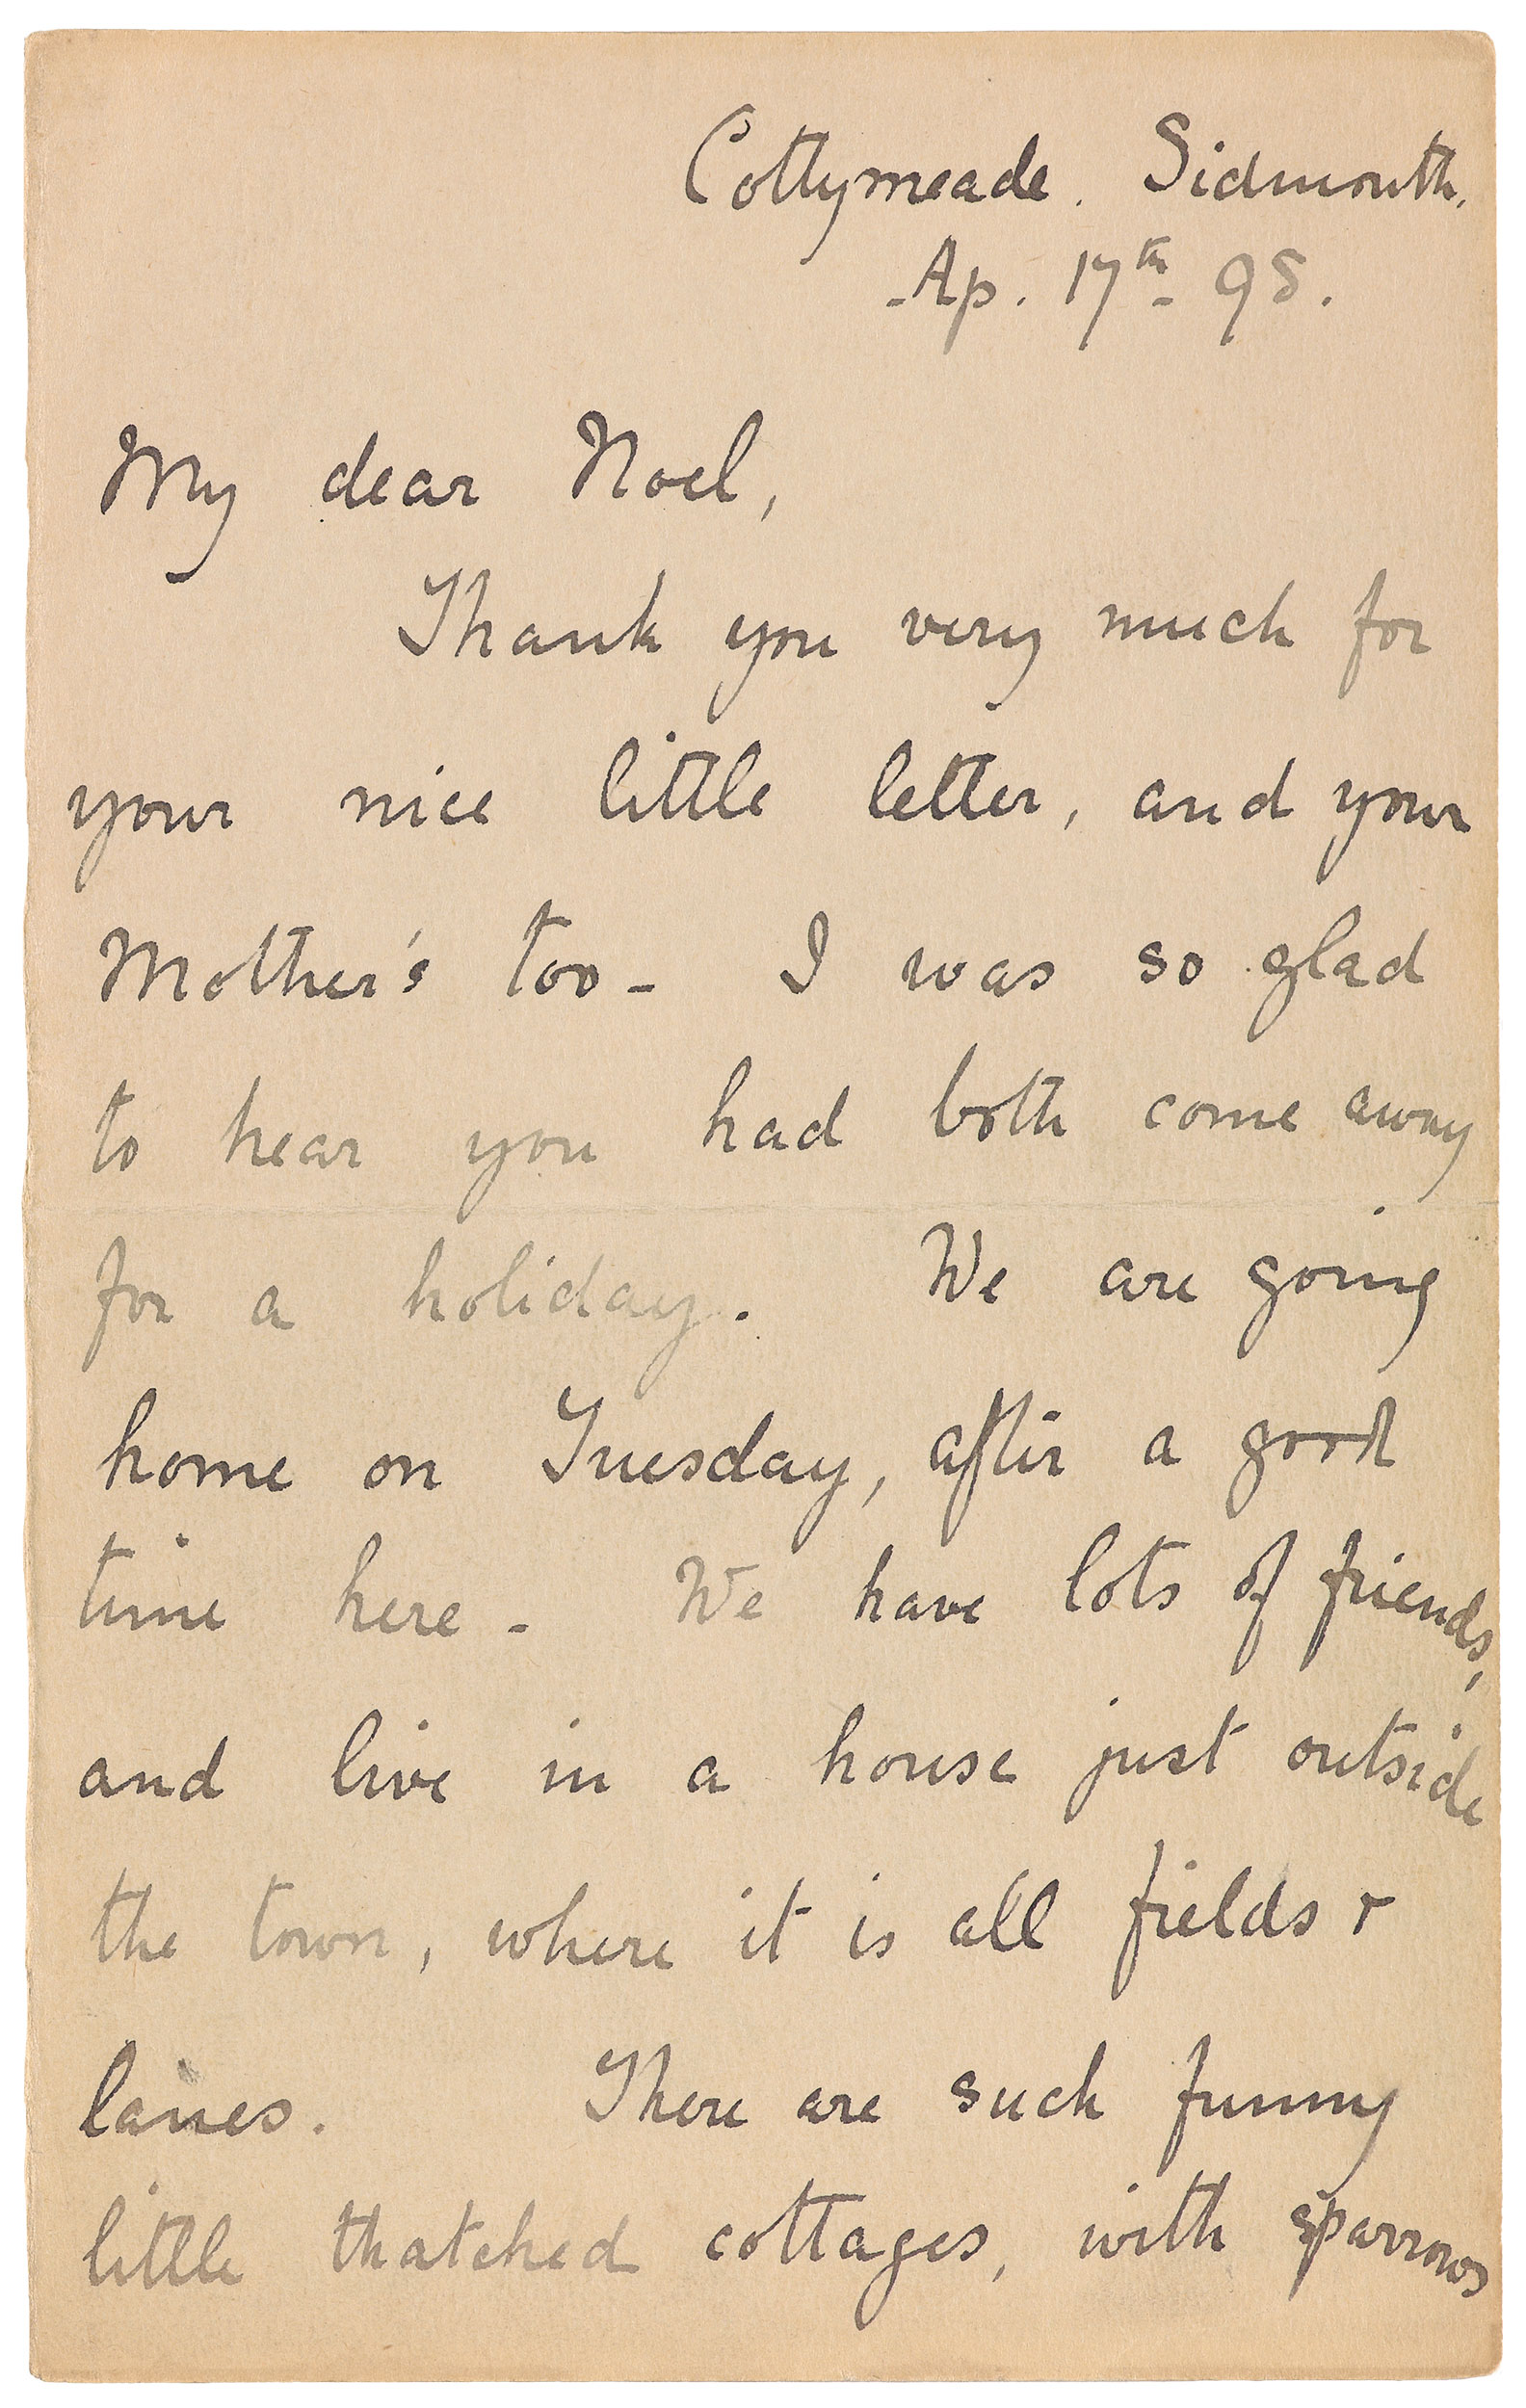 Cottymeade. Sidmouth.
Ap. 17th 98.
My dear Noel,
Thank you very much for
your nice little letter, and your
Mother's too - I was so glad
to hear you had both come away
for a holiday. We are going
home on Tuesday, after a good
time here - We have lots of friends,
and live in a house just outside
the town, where it is all fields &
lanes. There are such funny
little thatched cottages, with sparrows